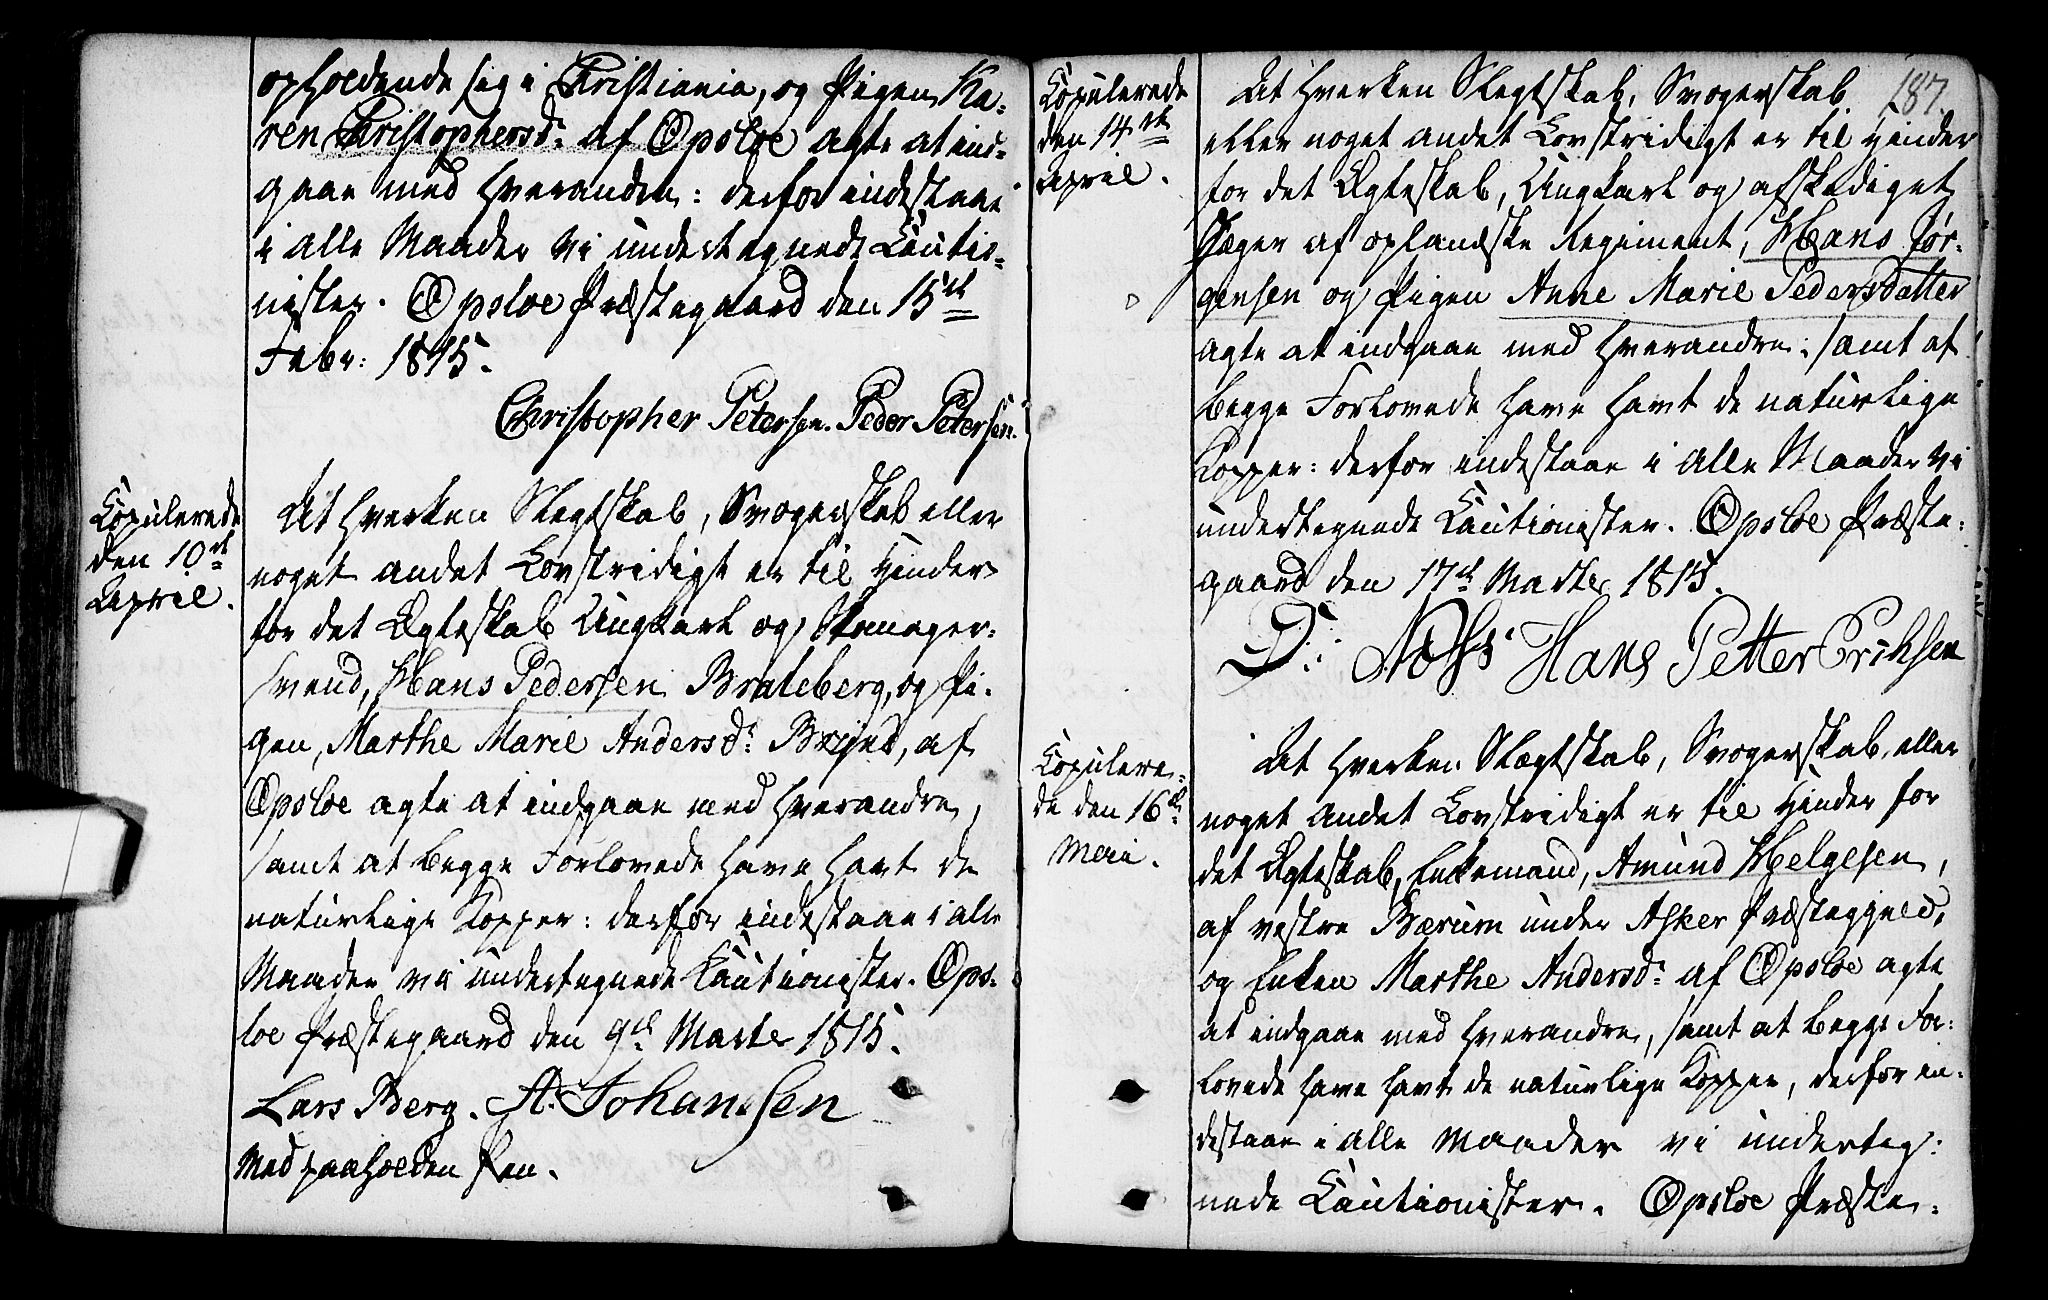 opholdende sig i Christiania, og Pigen Ka-
ren Christophersd: af Opsloe agte at ind-
gaae med hverandre: derfor indestaae
i alle Maader vi undertegnede Cautio-
nister. Opsloe Præstegaard den 15de
Febr: 1815.
Christopher Petersen. Peder Petersen.
Copulerede
den 10de
April.
At hverken Slegtskab, Svogerskab eller
noget andet Lovstridigt er til Hinder
for det Ægteskab Ungkarl og
svend, Hans Pedersen Brateberg, og Pi-
gen, Marthe Marie Andersd: Bryns, af
Opsloe agte at indgaae med hverandre,
samt at begge Forlovede have havt de
naturlige Kopper: derfor indestaae i alle
Maader vi undertegnede Cautionister. Ops-
loe Præstegaard den 9de Marts 1815.
Lars Berg. A. Johanssen
Med paaholden Pen.
187.
Copulerede
den 14de
April.
At hverken Slegtskab, Svogerskab
eller noget andet Lovstridigt er til Hinder
for det Ægteskab, Ungkarl og afskediget
Jæger af oplandske Regiment, Hans Jør-
gensen og Pigen Anne Marie Pedersdatter
agte at indgaae med hverandre: samt at
begge Forlovede have havt de naturlige
Kopper: derfor indestaae i alle Maader vi
undertegnede Cautionister. Opsloe Præste-
gaard den 17de Martz 1815.
Hans Petter Erichsen
Copulere-
de den 16de
Mai.
At hverken Slægtskab, Svogerskab, eller
noget andet Lovstridigt er til Hinder for
det Ægteskab, Enkemand, Amund Helgesen,
af vestre Bærum under Asker Præstegjeld,
og Enken Marthe Andersd: af Opsloe agte
at indgaae med hverandre, samt at begge For-
lovede have havt de naturlige Kopper, derfor in-
destaae i alle Maader vi underteg-
nede Cautionister. Opsloe Præste-